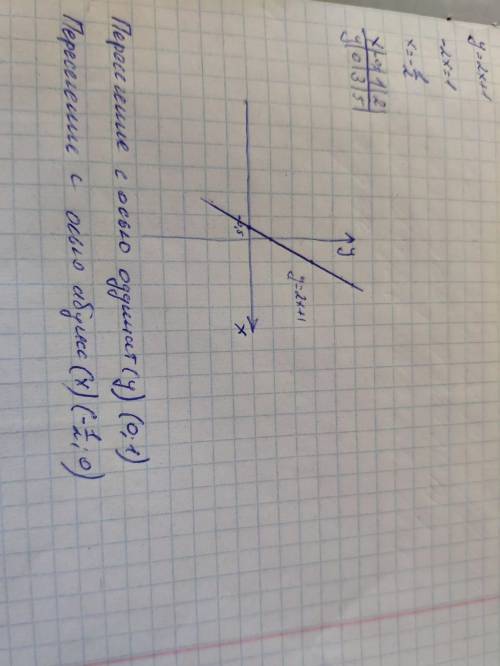 y=2x+1
-2x=1
x=-1/2
x | 0 | 1 | 2
y | 0 | 3 | 5
y
y=2x+1
-0,5
x
Пересечение с осью ординат (y) (0;1)
Пересечение с осью абсцисс (x) (-1/2; 0)